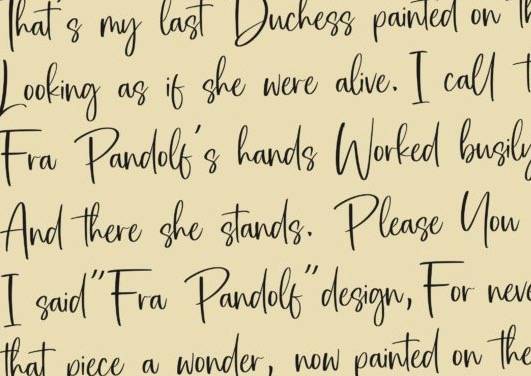 That's my last Duchess painted on th
Looking as if she were alive. I call t
Fra Pandolf's hands Worked busily
And there she stands. Please You
I said "Fra Pandolf" design, For neve
that piece a wonder, now painted on the